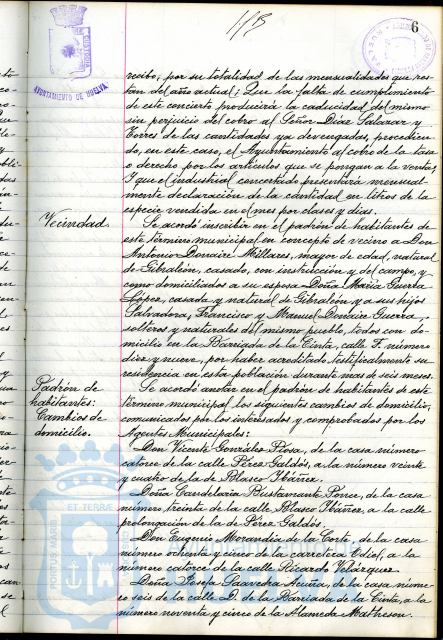 6
AYUNTAMIENTO DE HUELVA
recibo, por su totalidad de las mensualidades que res-
tan del año actual; Que la falta de cumplimiento
de este concierto producirá la caducidad del mismo
sin perjuicio del cobro al Señor Díaz Salazar y
Torres de las cantidades ya devengadas, procedien-
do, en este caso, el Ayuntamiento al cobro de la tasa
o derecho por los artículos que se pongan a la venta;
Y que el industrial concertado presentará mensual-
mente declaración de la cantidad en litros de la
especie vendida en el mes por clases y días.
Vecindad.
Se acordó inscribir en el padrón de habitantes de
este término municipal en concepto de vecino a Don
Antonio Donaire Millares, mayor de edad, natural
de Gibraleón, casado, con instrucción y del campo, y
como domiciliados a su esposa Doña María Guerra
López, casada y natural de Gibraleón y a sus hijos
Salvadora, Francisco y Manuel Donaire Guerra,
solteros y naturales del mismo pueblo, todos con do-
micilio en la Barriada de la Cinta, calle F. número
diez y nueve, por haber acreditado testificalmente su
residencia en esta población durante más de seis meses.
Padrón de
habitantes:
Cambios de
domicilio.
Se acordó anotar en el padrón de habitantes de este
término municipal los siguientes cambios de domicilio,
comunicados por los interesados y comprobados por los
Agentes Municipales:
Don Vicente González Piosa, de la casa número
catorce de la calle Pérez Galdós, a la número veinte
y cuatro de la de Blasco Ibáñez.
Doña Candelaria Bustamante Ponce, de la casa
número treinta de la calle Blasco Ibáñez, a la calle
prolongación de la de Pérez Galdós.
Don Eugenio Morandia de la Corte, de la casa
número ochenta y cinco de la carretera Odiel, a la
número catorce de la calle Ricardo Velázquez.
Doña Josefa Saavedra Acuña, de la casa núme-
ro seis de la calle D. de la Barriada de la Cinta, a la
número noventa y cinco de la Alameda Matheson.
PORTUS MARIS
ET TERRÆ